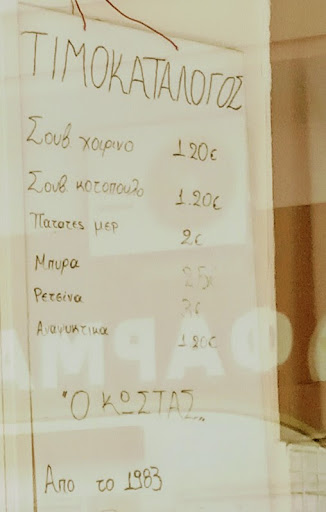 ΤΙΜΟΚΑΤΑΛΟΓΟΣ
Σουβ χοιρινο 1.20€
Σουβ κοτοπουλο 1.20€
Πατατες μερ 2€
Μπυρα
Ρετσινα
Αναψυκτικα 1.20€
"Ο ΚΩΣΤΑΣ"
Απο το 1983
ΦΑΡΜΑ